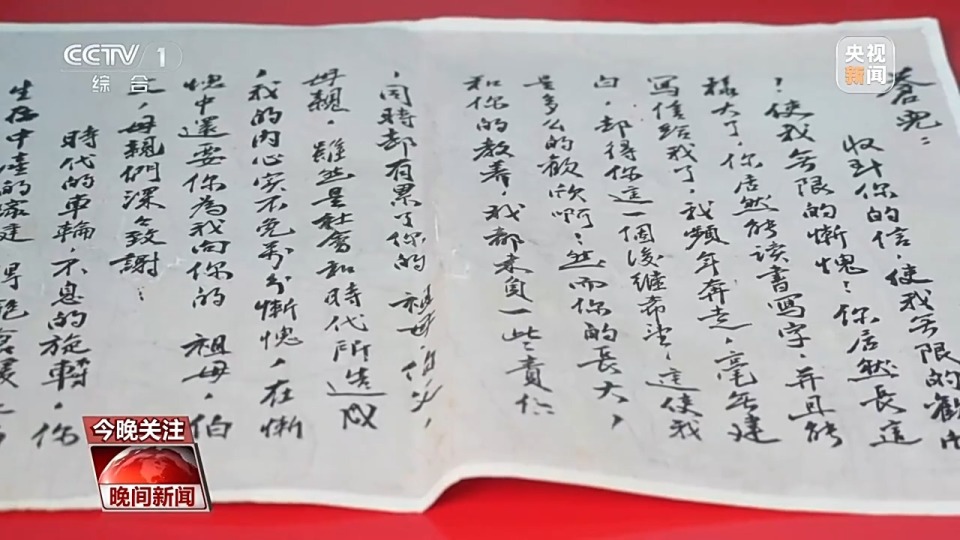 CCTV 1
综合
央视
新闻
蒼兒：
收到你的信，使我无限的歡
！使我无限的慚愧！你居然長這
樣大了，你居然能读書寫字，并且能
写信給我了，我頻年奔走，毫无建
白，却得你這一個後继希望，這使我
是多么的歡欣啊！然而你的長大，
和你的教養，我都未負一些責任
，同時却有累了你的 祖母，伯父，
母親。雖然是社會和時代所造成
，我的内心实不免万分慚愧，在慚
愧中還要你為我向你的 祖母，伯
父，母親們深致謝！
時代的車輪，不息的旋轉，你
生在中產的家庭
今晚关注
晚间新闻